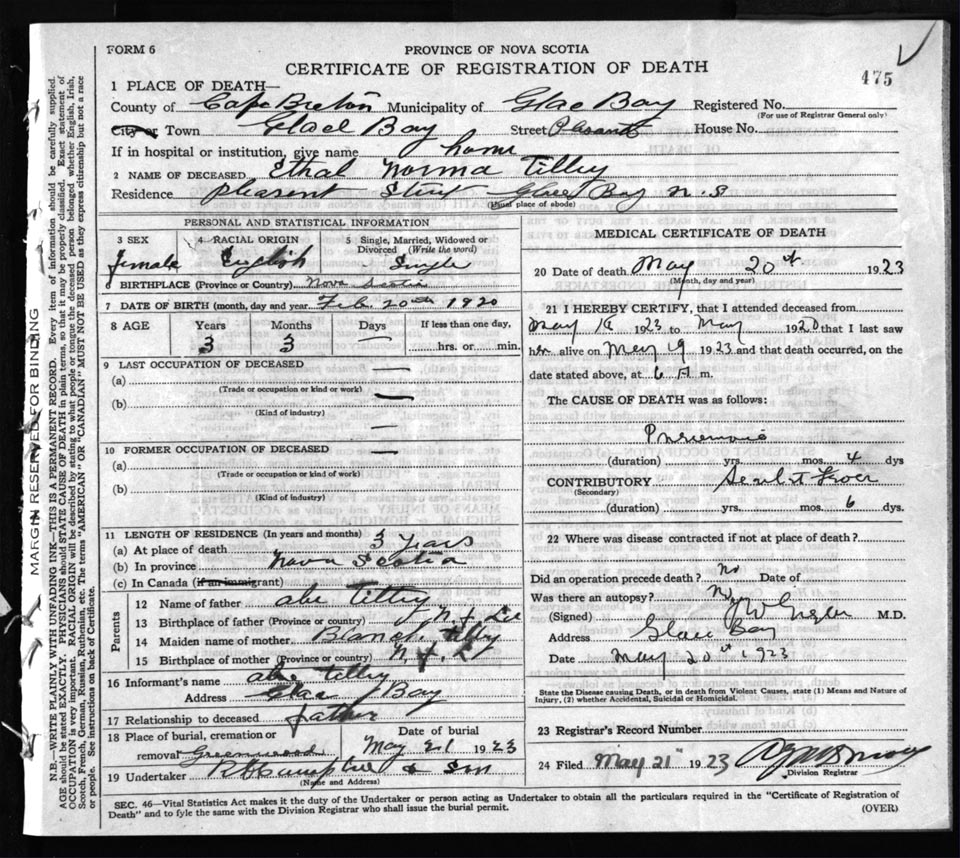 FORM 6
PROVINCE OF NOVA SCOTIA
CERTIFICATE OF REGISTRATION OF DEATH
475
1 PLACE OF DEATH—
County of Cape Breton Municipality of Glace Bay Registered No.
(For use of Registrar General only)
City or Town Glace Bay Street Plesant House No.
If in hospital or institution, give name home
2 NAME OF DECEASED Ethal Norma Tilley
Residence plesent Street Glace Bay N.S
(Usual place of abode)
PERSONAL AND STATISTICAL INFORMATION
3 SEX 4 RACIAL ORIGIN 5 Single, Married, Widowed or Divorced (Write the word)
female English Single
6 BIRTHPLACE (Province or Country) Nova Scotia
7 DATE OF BIRTH (month, day and year) Feb. 20th 1920
8 AGE Years Months Days If less than one day,
3 3 — hrs. or min.
9 LAST OCCUPATION OF DECEASED —
(a) —
(Trade or occupation or kind or work)
(b) —
(Kind of industry)
—
10 FORMER OCCUPATION OF DECEASED —
(a)
(Trade or occupation or kind of work)
(b)
(Kind of industry)
11 LENGTH OF RESIDENCE (In years and months) 3 years
(a) At place of death
(b) In province Nova Scotia
(c) In Canada (if an immigrant)
Parents
12 Name of father abe Tilley
13 Birthplace of father (Province or country)
14 Maiden name of mother
15 Birthplace of mother (Province or country)
16 Informant's name abe Tilley
Address Glace Bay
17 Relationship to deceased father
18 Place of burial, cremation or Date of burial
removal Greenwood May 21 1923
19 Undertaker & Son
(Name and Address)
MEDICAL CERTIFICATE OF DEATH
20 Date of death May 20th 1923
(Month, day and year)
21 I HEREBY CERTIFY, that I attended deceased from
May 16 1923 to May 1920 that I last saw
her alive on May 19 1923 and that death occurred, on the
date stated above, at 6 A m.
The CAUSE OF DEATH was as follows:
Pneumonia
(duration) yrs. mos. 4 dys
CONTRIBUTORY Scarlet Fever
(Secondary)
(duration) yrs. mos. 6 dys.
22 Where was disease contracted if not at place of death?
Did an operation precede death? No Date of
Was there an autopsy? No
(Signed) M.D.
Address Glace Bay
Date May 20th 1923
State the Disease causing Death, or in death from Violent Causes, state (1) Means and Nature of
Injury, (2) whether Accidental, Suicidal or Homicidal.
23 Registrar's Record Number
24 Filed May 21 1923
Division Registrar
SEC. 46—Vital Statistics Act makes it the duty of the Undertaker or person acting as Undertaker to obtain all the particulars required in the "Certificate of Registration of
Death" and to fyle the same with the Division Registrar who shall issue the burial permit. (OVER)
MARGIN RESERVED FOR BINDING
N.B.—WRITE PLAINLY WITH UNFADING INK—THIS IS A PERMANENT RECORD. Every item of information should be carefully supplied.
AGE should be stated EXACTLY. PHYSICIANS should STATE CAUSE OF DEATH in plain terms, so that it may be properly classified. Exact statement of
OCCUPATION is very important. RACIAL ORIGIN will be described by stating to what people or tongue the deceased person belonged whether English, Irish,
Scotch, French, German, Russian, Ruthenian, etc. The terms "AMERICAN" OR "CANADIAN" MUST NOT BE USED as they express citizenship but not a race
or people. See instructions on back of Certificate.